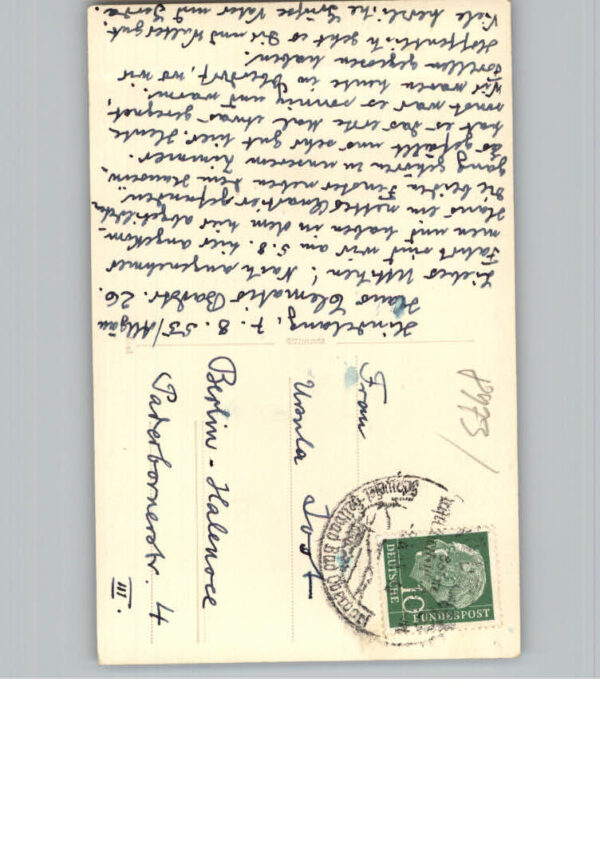 Hindelang, 7.8.55/Allgäu
Haus Clematis Badstr. 26.
Liebes Utchen! Nach angenehmer
Fahrt sind wir am 5.8. hier angekom-
men und haben in dem hier abgebildeten
Haus ein nettes Quartier gefunden.
Die beiden Fenster neben dem Hausein-
gang gehören zu unserem Zimmer.
Es gefällt uns sehr gut hier. Heute
hat es das erste Mal etwas geregnet,
sonst war es sonnig und warm.
Wir waren heute in Oberdorf, wo wir
Forellen gegessen haben.
Hoffentlich geht es Dir und Walter gut
Viele herzliche Grüße Vater und Gerda.
Frau
Ursula Jost
Berlin-Halensee
Paderbornerstr. 4
III.
DEUTSCHE
BUNDESPOST
10
8973/